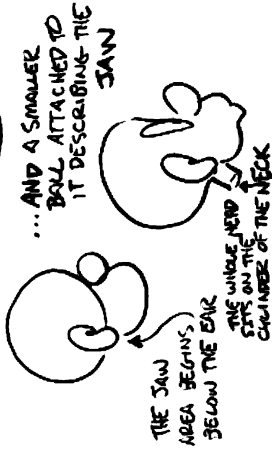 ... AND A SMALLER
BALL ATTACHED TO
IT DESCRIBING THE
JAW
THE JAW
AREA BEGINS
BELOW THE EAR
THE WHOLE HEAD
SITS ON THE
CYLINDER OF THE NECK